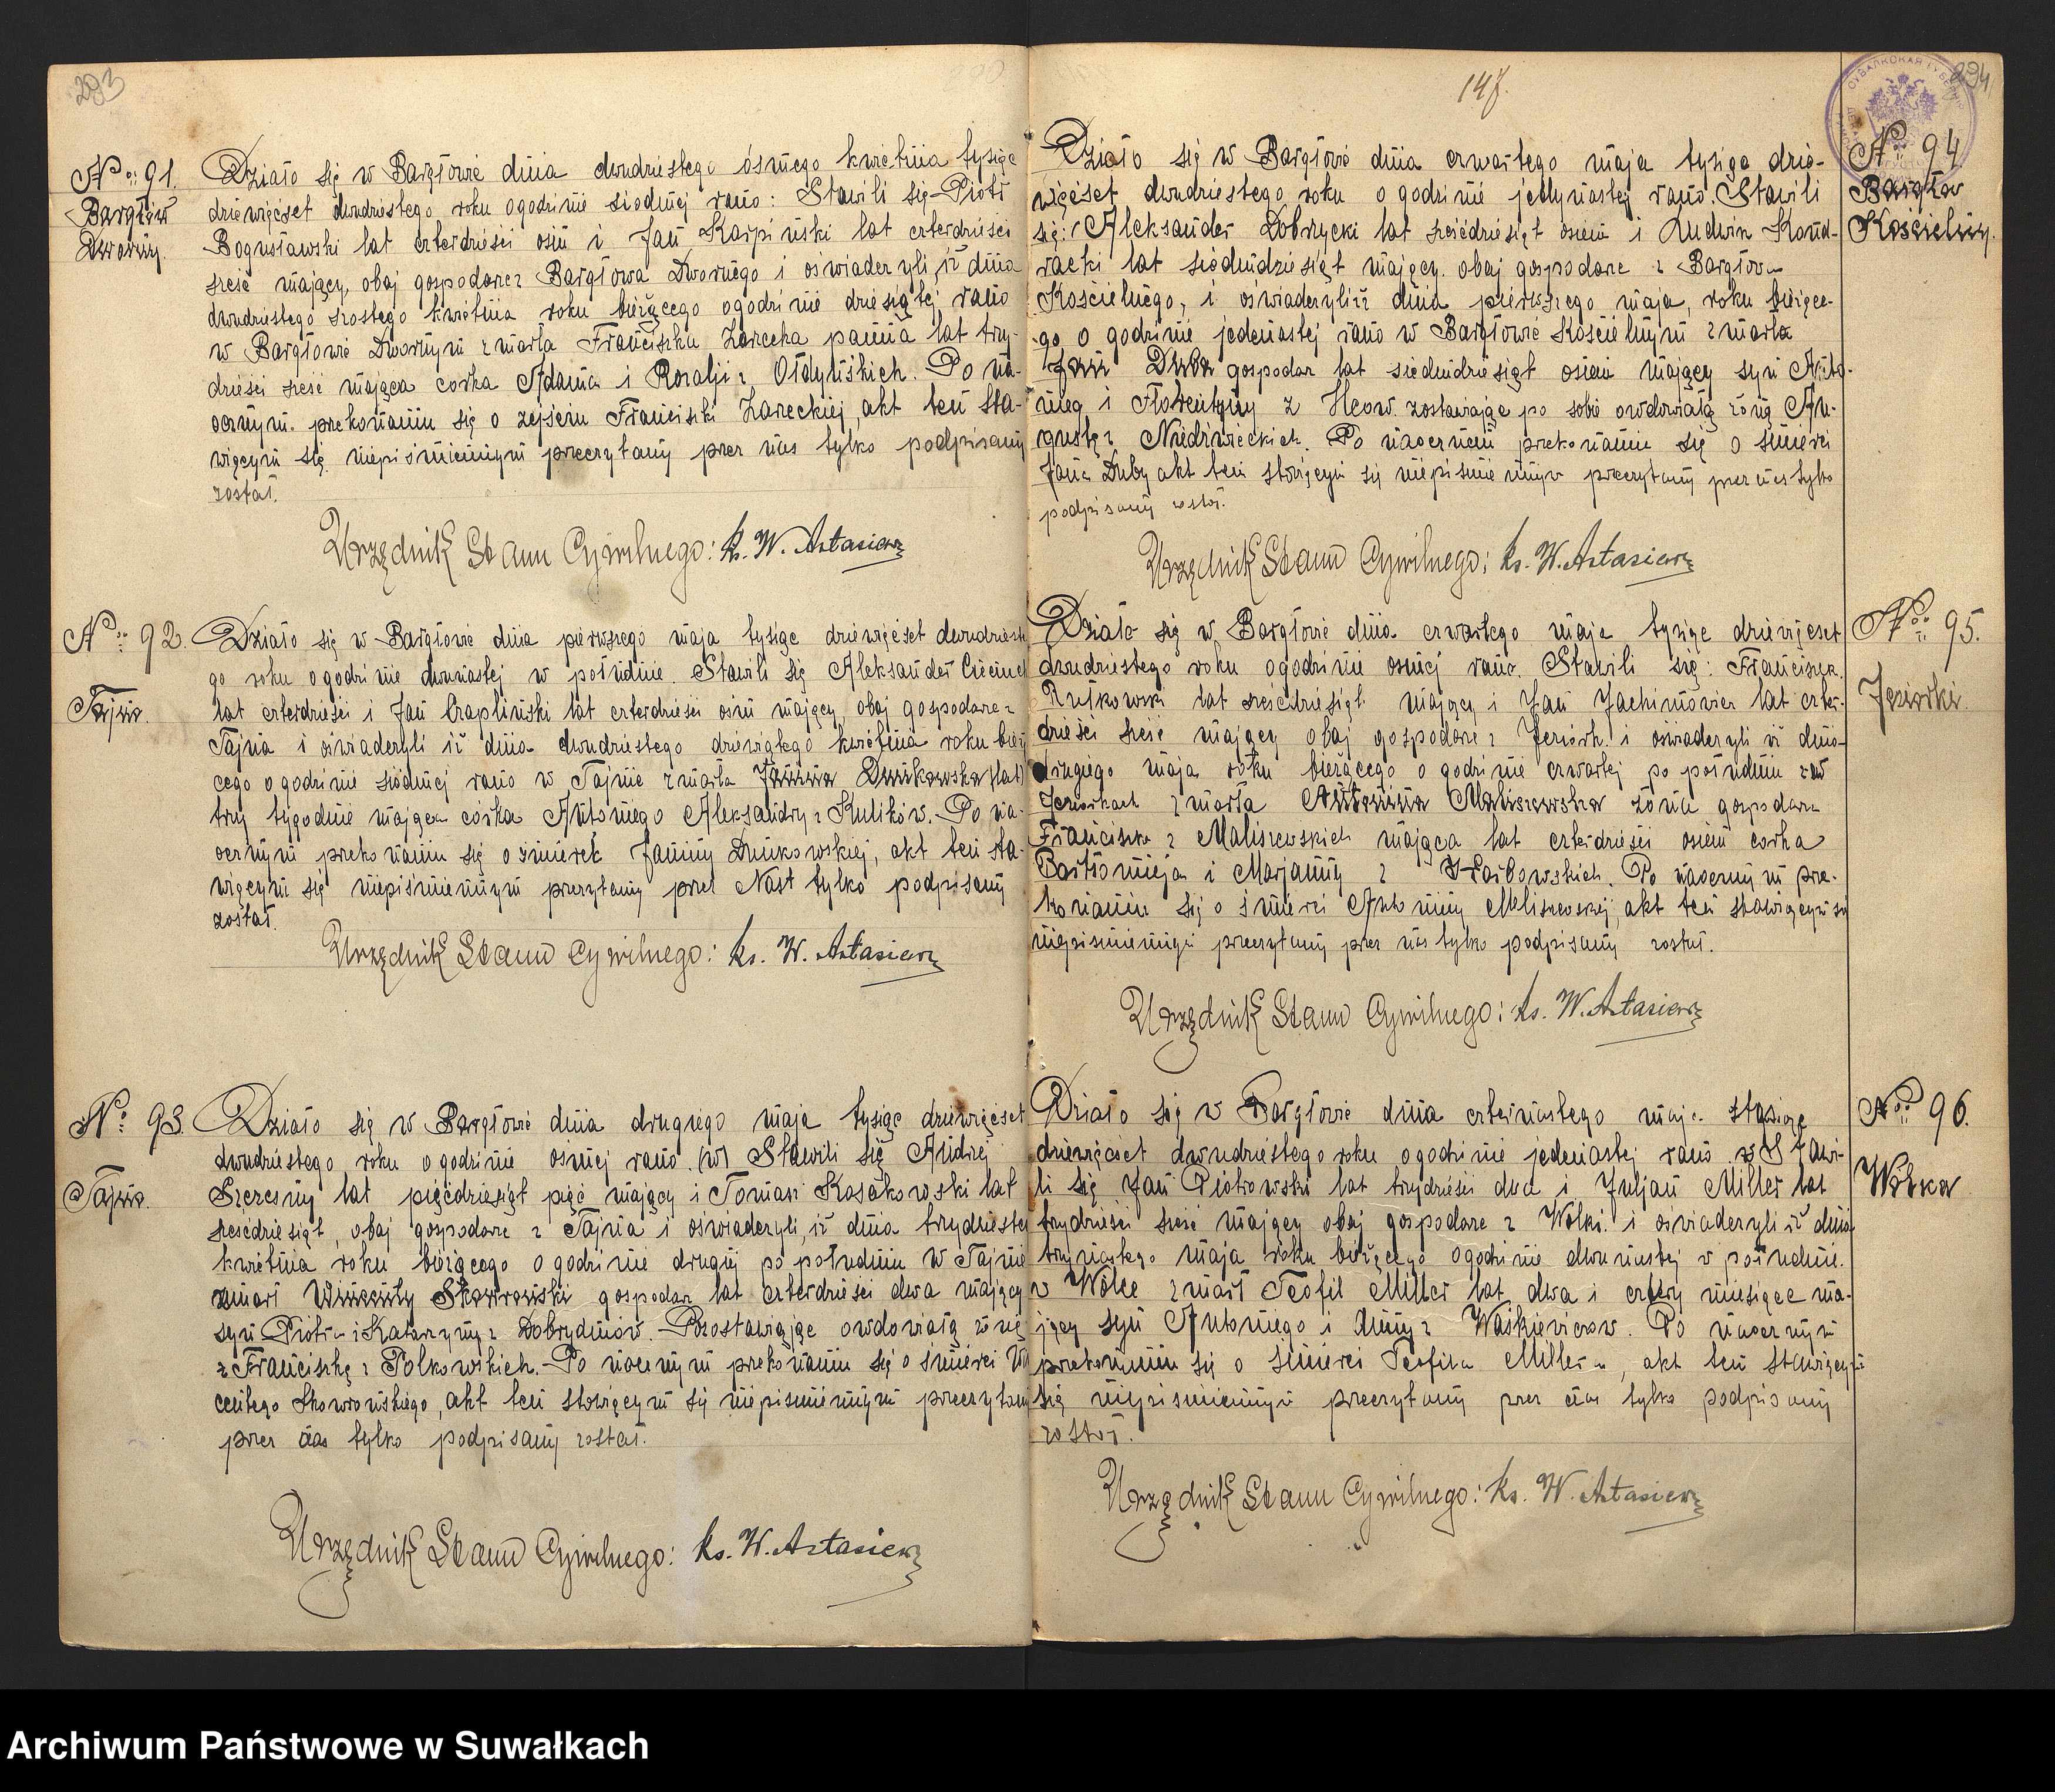 293
No 91.
Bargłów
Dworny.
Działo się w Bargłowie dnia dwudziestego ósmego kwietnia tysiąc
dziewięćset dwudziestego roku o godzinie siódmej rano: Stawili się Piotr
Bogusławski lat czterdzieści ośm i Jan Karpiński lat czterdzieści
sześć mający, obaj gospodarze z Bargłowa Dwornego i oświadczyli, iż dnia
dwudziestego szostego kwietnia roku bieżącego o godzinie dziesiątej rano
w Bargłowie Dwornym zmarła Franciszka Zarecka panna lat trzy-
dzieści sześć mająca corka Adama i Rozalji z Ołdyńskich. Po na-
ocznym przekonaniu się o zejściu Franciszki Zareckiej, akt ten sta-
wiącym się niepiśmiennym przeczytany przez nas tylko podpisany
został.
Urzędnik Stanu Cywilnego: ks. W. Astasiewicz
No 92.
Tajno.
Działo się w Bargłowie dnia pierwszego maja tysiąc dziewięćset dwudzieste
go roku o godzinie dwunastej w południe. Stawili się Aleksander
lat czterdzieści i Jan Czapliński lat czterdzieści ośm mający obaj gospodarze z
Tajna i oświadczyli iż dnia dwudziestego dziewiątego kwietnia roku bieżą
cego o godzinie siódmej rano w Tajnie zmarła Janina Dmikowska (lat)
trzy tygodnie mająca córka Antoniego Aleksandry z Kulików. Po na-
ocznym przekonaniu się o śmierci Janiny Dmikowskiej, akt ten sta-
wiącym się niepiśmiennym przeczytany przez Nas tylko podpisany
został.
Urzędnik Stanu Cywilnego: ks. W. Astasiewicz
No 93.
Tajno.
Działo się w Bargłowie dnia drugiego maja tysiąc dziewięćset
dwudziestego roku o godzinie ósmej rano. (w) Stawili się Andrzej
Szczesny lat pięćdziesiąt pięć mający i Tomasz Kosakowski lat
sześćdziesiąt, obaj gospodarze z Tajna i oświadczyli, iż dnia trzydzieste
kwietnia roku bieżącego o godzinie drugiej po południu w Tajnie
zmarł Wincenty Skowroński gospodarz lat czterdzieści dwa mający
syn Piotra i Katarzyny z Dobrydniów. Pozostawiając owdowiałą żonę
z Franciszkę z Polkowskich. Po naocznym przekonaniu się o śmierci Win
centego Skowrońskiego, akt ten stawiącym się niepiśmiennym przeczytany
przez nas tylko podpisany został.
Urzędnik Stanu Cywilnego: ks. W. Astasiewicz
147.
294
No 94
Bargłów
Kościelny.
Działo się w Bargłowie dnia czwartego maja tysiąc dzie-
więćset dwudziestego roku o godzinie jedynastej rano. Stawili
się: Aleksander Dobrzycki lat sześćdziesiąt osiem i Ludwik Kond-
racki lat siedmdziesiąt mający. obaj gospodarze z Bargłowa
Kościelnego, i oświadczyli iż dnia pierwszego maja, roku bieżące-
go o godzinie jedenastej rano w Bargłowie Kościelnym zmarła
Jan Duba gospodarz lat siedmdziesiąt osiem mający syn Anto-
niego i Florentyny z zostawiając po sobie owdowiałą żonę Au-
gustę z Niedźwieckich. Po naocznem przekonaniu się o śmierci
Jana Duby akt ten stawiącym się niepiśmiennym przeczytany przez nas tylko
podpisany został.
Urzędnik Stanu Cywilnego: ks. W. Astasiewicz
No 95.
Jeziorki.
Działo się w Bargłowie dnia czwartego maja tysiąc dziewięćset
dwudziestego roku o godzinie osmej rano. Stawili się: Franciszek
Rutkowski lat sześćdziesiąt mający i Jan Jachimowicz lat czter-
dzieści sześć mający obaj gospodarze z Jeziork. i oświadczyli iż dnia
drugiego maja roku bieżącego o godzinie czwartej po południu w
Jeziorkach zmarła Antonina Maliszewska żona gospodarza
Franciszka z Maliszewskich mająca lat czterdzieści osiem corka
Bartłomieja i Marjanny z Karbowskich. Po naocznym prze-
konaniu się o śmierci Antoniny Maliszewskiej, akt ten stawiącym się
niepiśmiennym przeczytany przez nas tylko podpisany został.
Urzędnik Stanu Cywilnego: ks. W. Astasiewicz
No 96.
Wólka
Działo się w Bargłowie dnia czternastego maja tysiąc
dziewięćset dwudziestego roku o godzinie jedenastej rano w Stawi-
li się Jan Piotrowski lat trzydzieści dwa i Juljan Miller lat
trzydzieści sześć mający obaj gospodarze z Wólki. i oświadczyli iż dnia
trzynastego maja roku bieżącego o godzinie dwunastej w południe.
w Wólce zmarł Teofil Miller lat dwa i cztery miesiące ma-
jący syn Antoniego i Anny z Waśkiewiczów. Po naocznym
przekonaniu się o śmierci Teofila Millera, akt ten stawiącym
się niepiśmiennym przeczytany przez nas tylko podpisany
został.
Urzędnik Stanu Cywilnego: ks. W. Astasiewicz
Archiwum Państwowe w Suwałkach